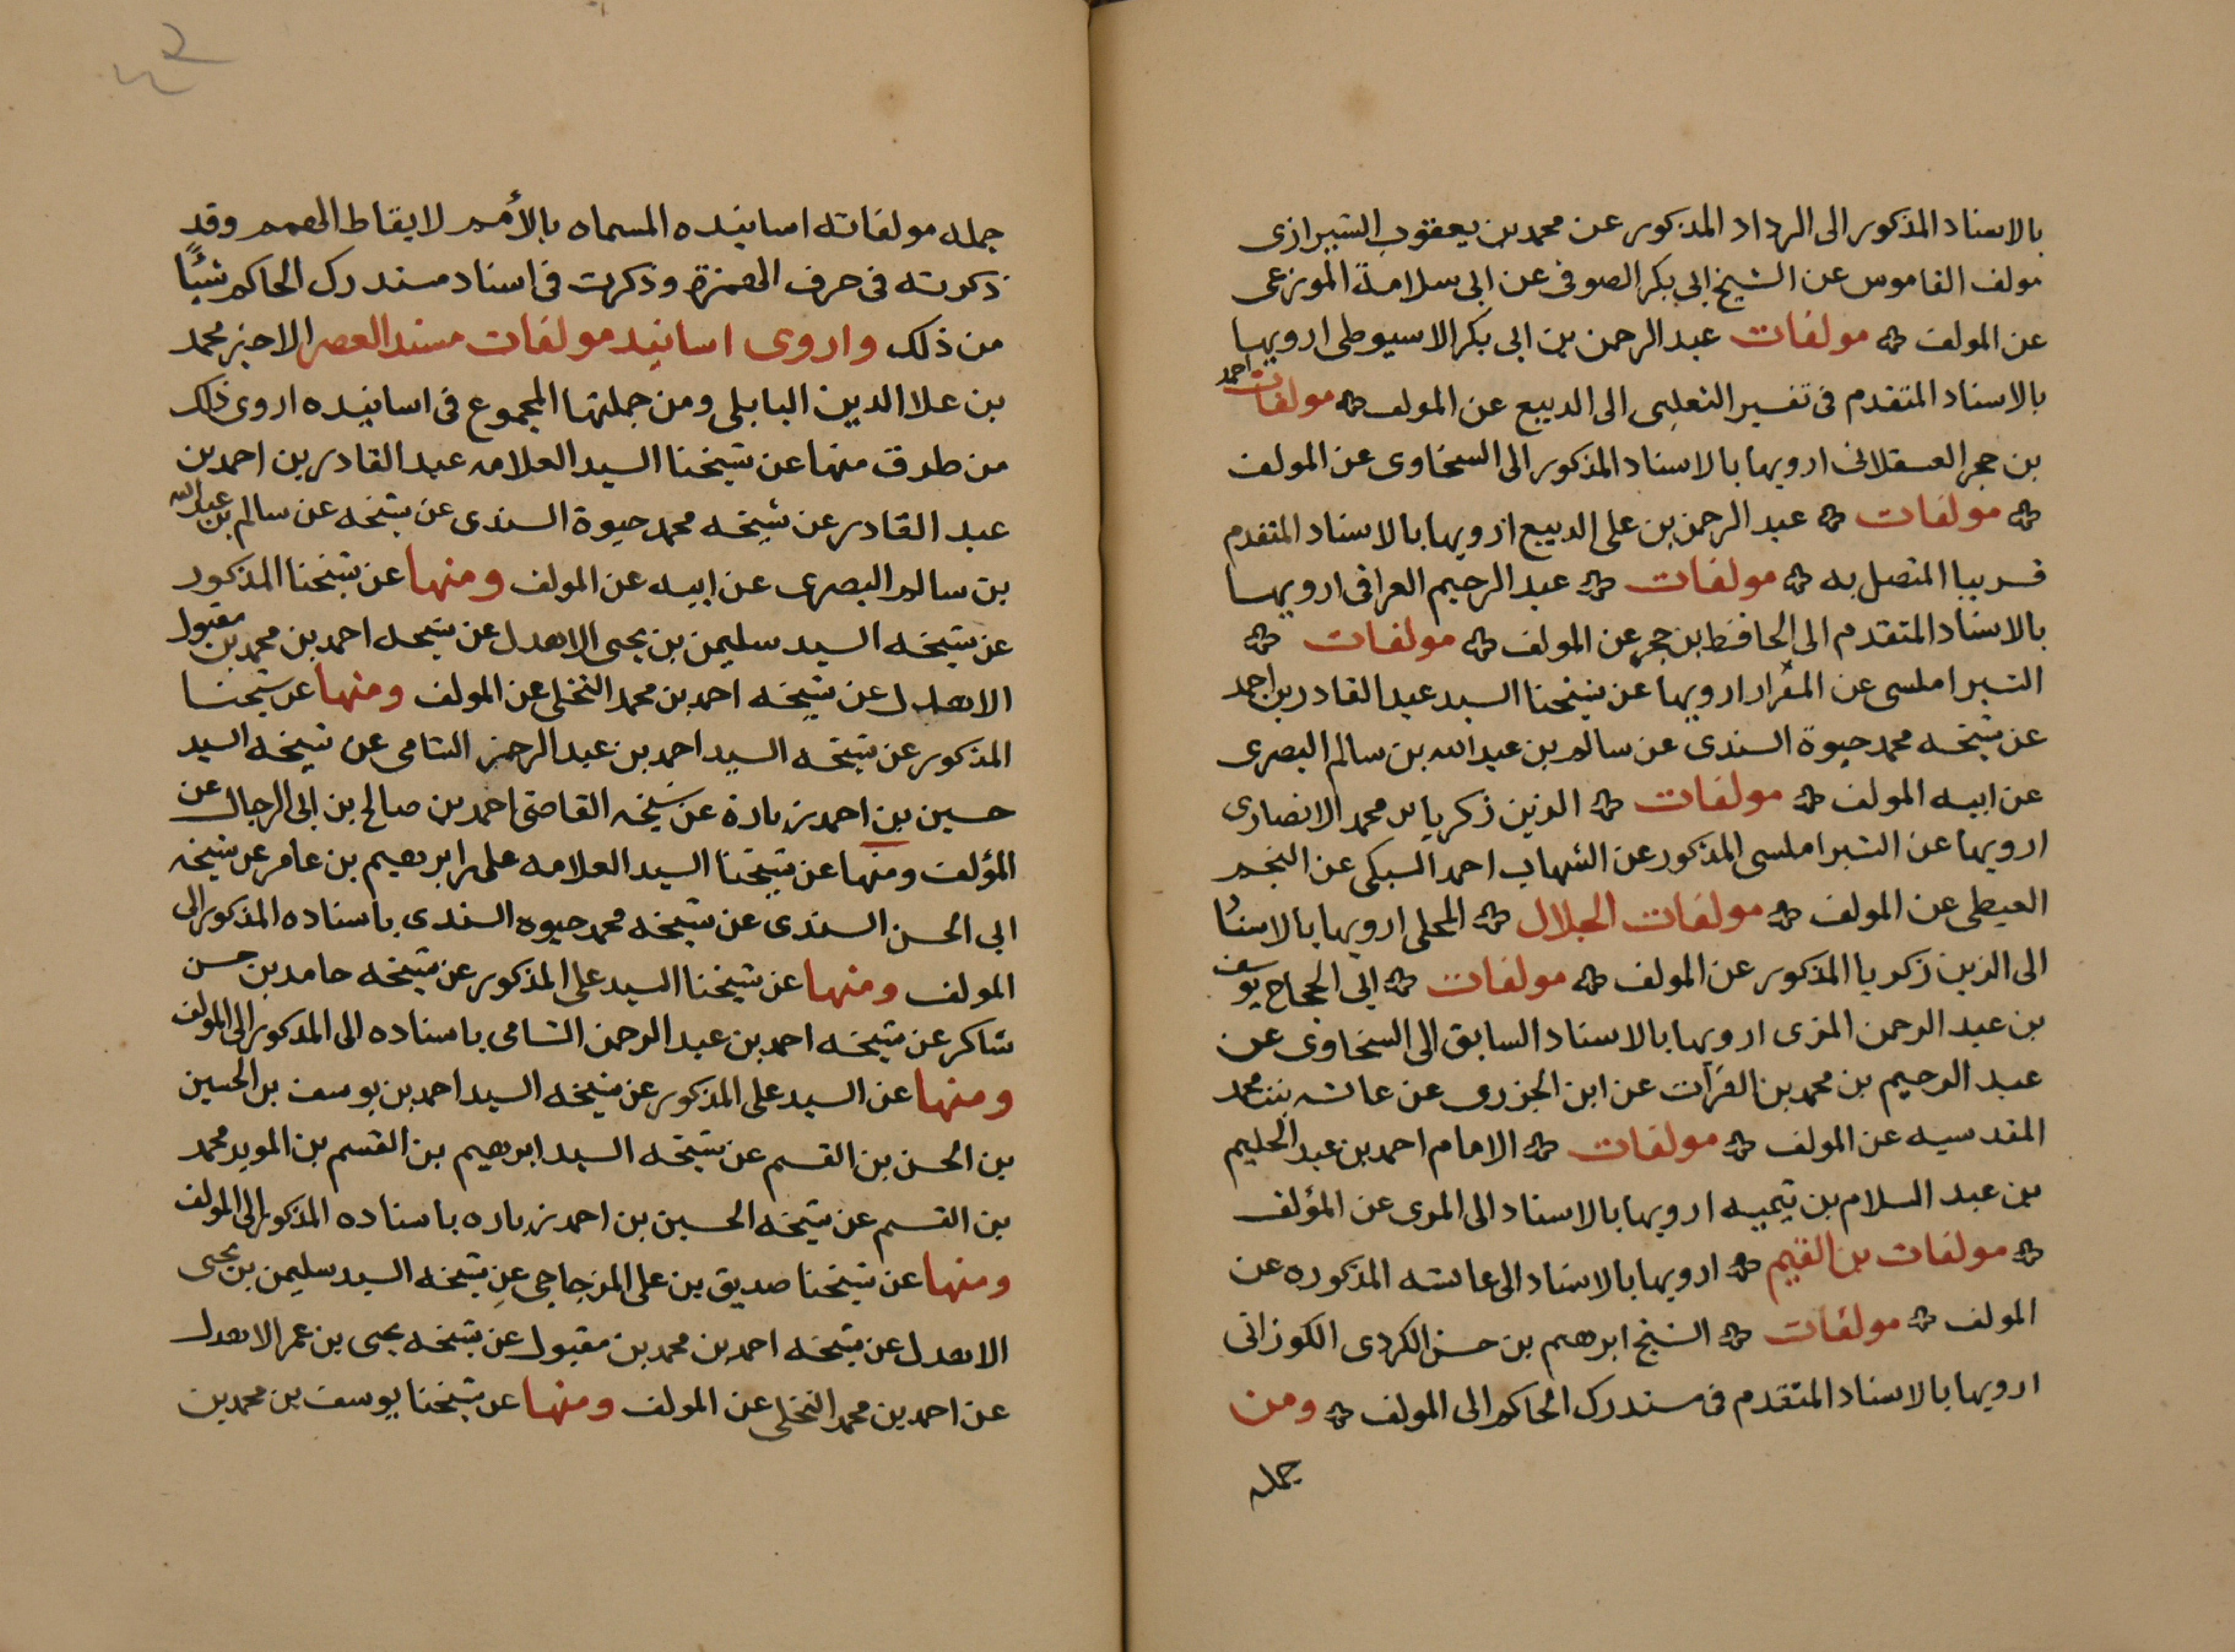 بالاسناد المذكور الى الرداد المذكور عن محمد بن يعقوب الشيرازى
مولف القاموس عن الشيخ ابى بكر الصوفى عن ابى سلامة الموزعى
عن المولف مولفات عبد الرحمن بن ابى بكر الاسيوطى ارويها
بالاسناد المتقدم فى تفسير الثعلبى الى الديبع عن المولف مولفات احمد
بن حجر العسقلانى ارويها بالاسناد المذكور الى السخاوى عن المولف
مولفات عبد الرحمن بن على الديبع ارويها بالاسناد المتقدم
قريبا المتصل به مولفات عبد الرحيم العراقى ارويها
بالاسناد المتقدم الى الحافظ بن حجر عن المولف مولفات
الشبراملسى عن ارويها عن شيخنا السيد عبد القادر بن احمد
عن شيخه محمد حيوة السندى عن سالم بن عبد الله بن سالم البصرى
عن ابيه المولف مولفات الزين زكريا بن محمد الانصارى
ارويها عن الشبراملسى المذكور عن الشهاب احمد السبكى عن النجم
الغيطى عن المولف مولفات الجلال المحلى ارويها بالاسناد
الى الزين زكريا المذكور عن المولف مولفات ابى الحجاج يوسف
بن عبد الرحمن المزى ارويها بالاسناد السابق الى السخاوى عن
عبد الرحيم بن محمد بن الفرات عن ابن الجزرى عن عائشه بنت محمد
المقدسيه عن المولف مولفات الامام احمد بن عبد الحليم
بن عبد السلام بن تيميه ارويها بالاسناد الى المزى عن المؤلف
مولفات بن القيم ارويها بالاسناد الى عائشه المذكوره عن
المولف مولفات الشيخ ابرهيم بن حسن الكردى الكورانى
ارويها بالاسناد المتقدم فى مستدرك الحاكم الى المولف ومن
جمله
جمله مولفاته اسانيده المسماه بالأمم لايقاظ الهمم وقد
ذكرته فى حرف الهمزة وذكرت فى اسناد مستدرك الحاكم شيئًا
من ذلك واروى اسانيد مولفات مسند العصر الاخير محمد
بن علا الدين البابلى ومن جملتها المجموع فى اسانيده اروى ذلك
من طرق منها عن شيخنا السيد العلامه عبد القادر بن احمد بن
عبد القادر عن شيخه محمد حيوة السندى عن شيخه عن سالم بن عبد الله
بن سالم البصرى عن ابيه عن المولف ومنها عن شيخنا المذكور
عن شيخه السيد سليمن بن يحيى الاهدل عن شيخه احمد بن محمد بن مقبول
الاهدل عن شيخه احمد بن محمد النخلى عن المولف ومنها عن شيخنا
المذكور عن شيخه السيد احمد بن عبد الرحمن الشامى عن شيخه السيد
حسين بن احمد زبارة عن شيخه القاضى احمد بن صالح بن ابى الرجال عن
المؤلف ومنها عن شيخنا السيد العلامه على ابرهيم بن عامر عن شيخه
ابى الحسن السندى عن شيخه محمد حيوه السندى باسناده المذكور الى
المولف ومنها عن شيخنا السيد على المذكور عن شيخه حامد بن حسن
شاكر عن شيخه احمد بن عبد الرحمن الشامى باسناده الى المذكور الى المولف
ومنها عن السيد على المذكور عن شيخه السيد احمد بن يوسف بن الحسين
بن الحسن بن القسم عن شيخه السيد ابرهيم بن القسم بن المويد محمد
بن القسم عن شيخه الحسين بن احمد زباره باسناده المذكور الى المولف
ومنها عن شيخنا صديق بن على المزجاجى عن شيخه السيد سليمن بن يحيى
الاهدل عن شيخه احمد بن محمد بن مقبول عن شيخه يحيى بن عمر الاهدل
عن احمد بن محمد النخلى عن المولف ومنها عن شيخنا يوسف بن محمد بن